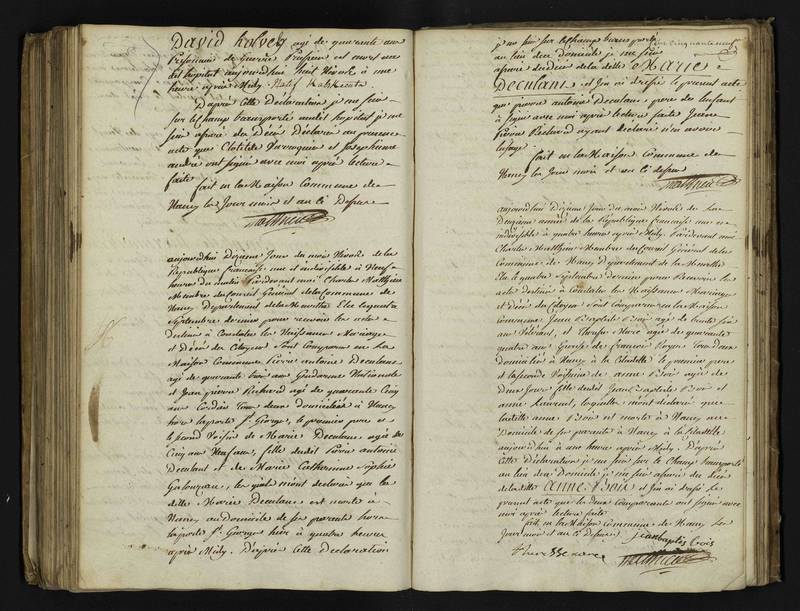 David Kolveg agé de quarante ans
Prisonnier de Guerre Prussien est mort au
dit hopital aujourdhui huit Nivose à une
heure après Midy. Natif
D'après Cette Déclaration je me suis
sur le champ transporté audit hopital je me
suis assuré du Décès Déclaré au présent
acte que Clotilde et Josephinne
andré ont signé avec moi après lecture
faite
fait en la Maison Commune de
Nancy les Jour mois et an ci Dessus
Matthieu
aujourdhui Dixieme Jour du mois Nivose de la
République française une et indivisible à Neuf
heures du matin Pardevant moi Charles Matthieu
Membre du Conseil Général de la Commune de
Nancy Departement de la Meurthe Elu le quatre
Septembre dernier pour recevoir les actes
Destinés à Constater les Naissances Mariages
et Décès des Citoyens Sont Comparus en La
Maison Commune Pierre antoine Deculant
agé de quarante trois ans Gendarme Nationale
et Jean pierre Richard agé de quarante Cinq
ans Cordier Tous deux domiciliés à Nancy
hors la porte St George, le premier pere et
le second Voisin de Marie Deculant agée de
Cinq ans Neuf mois, fille dudit Pierre Antoine
Deculant et de Marie Catherinne Sophie
lesquels m'ont déclaré que la
ditte Marie Deculant est morte à
Nancy au Domicile de ses parents hors
la porte St George hier à quatre heures
après Midy. D'après Cette Déclaration
je me suis sur le champ transporté
cent cinquante neuf
au lieu du Domicile je me suis
assuré du décès de la ditte Marie
Deculant et J'en ai dressé le present acte
que pierre antoine Deculant pere de l'enfant
a signé avec moi après lecture faite Jean
Pierre Richard ayant declaré n'en avoir
l'usage
fait en la Maison Commune de
Nancy les Jour mois et an ci dessus
Matthieu
aujourdhui Dixieme Jour du mois Nivose de la
Deuxieme année de la République française une
indivisible à quatre heures après Midy. Pardevant moi
Charles Matthieu Membre du Conseil Général de la
Commune de Nancy Departement de la Meurthe
Elu le quatre Septembre dernier pour Recevoir les
acte Destinés à Constater les Naissances Mariages
et Décès des Citoyens Sont Comparus en la Maison
commune Jean Baptiste Bois agé de trente six
ans et Therese Marc agée de quarante
quatre ans Epouse de françois Tous Deux
Domiciliés à Nancy à la Citadelle le premier pere
et la seconde Voisinne de anne Bois agée de
Deux Jours fille dudit Jean Baptiste Bois et
anne Laurent, lesquels mont déclaré que
laditte anne Bois est morte à Nancy au
Domicile de ses parents à Nancy à la Citadelle
aujourdhui à une heure après Midy. D'après
cette Déclaration je me suis sur le Champ transporté
au lieu du Domicile je me suis assuré du décès
de laditte Anne Bois et J'en ai dressé Le
present acte que les deux Comparants ont signé avec
moi après lecture faite
fait en la Maison Commune de Nancy les
Jour mois et an ci Dessus jean baptis bois
Matthieu